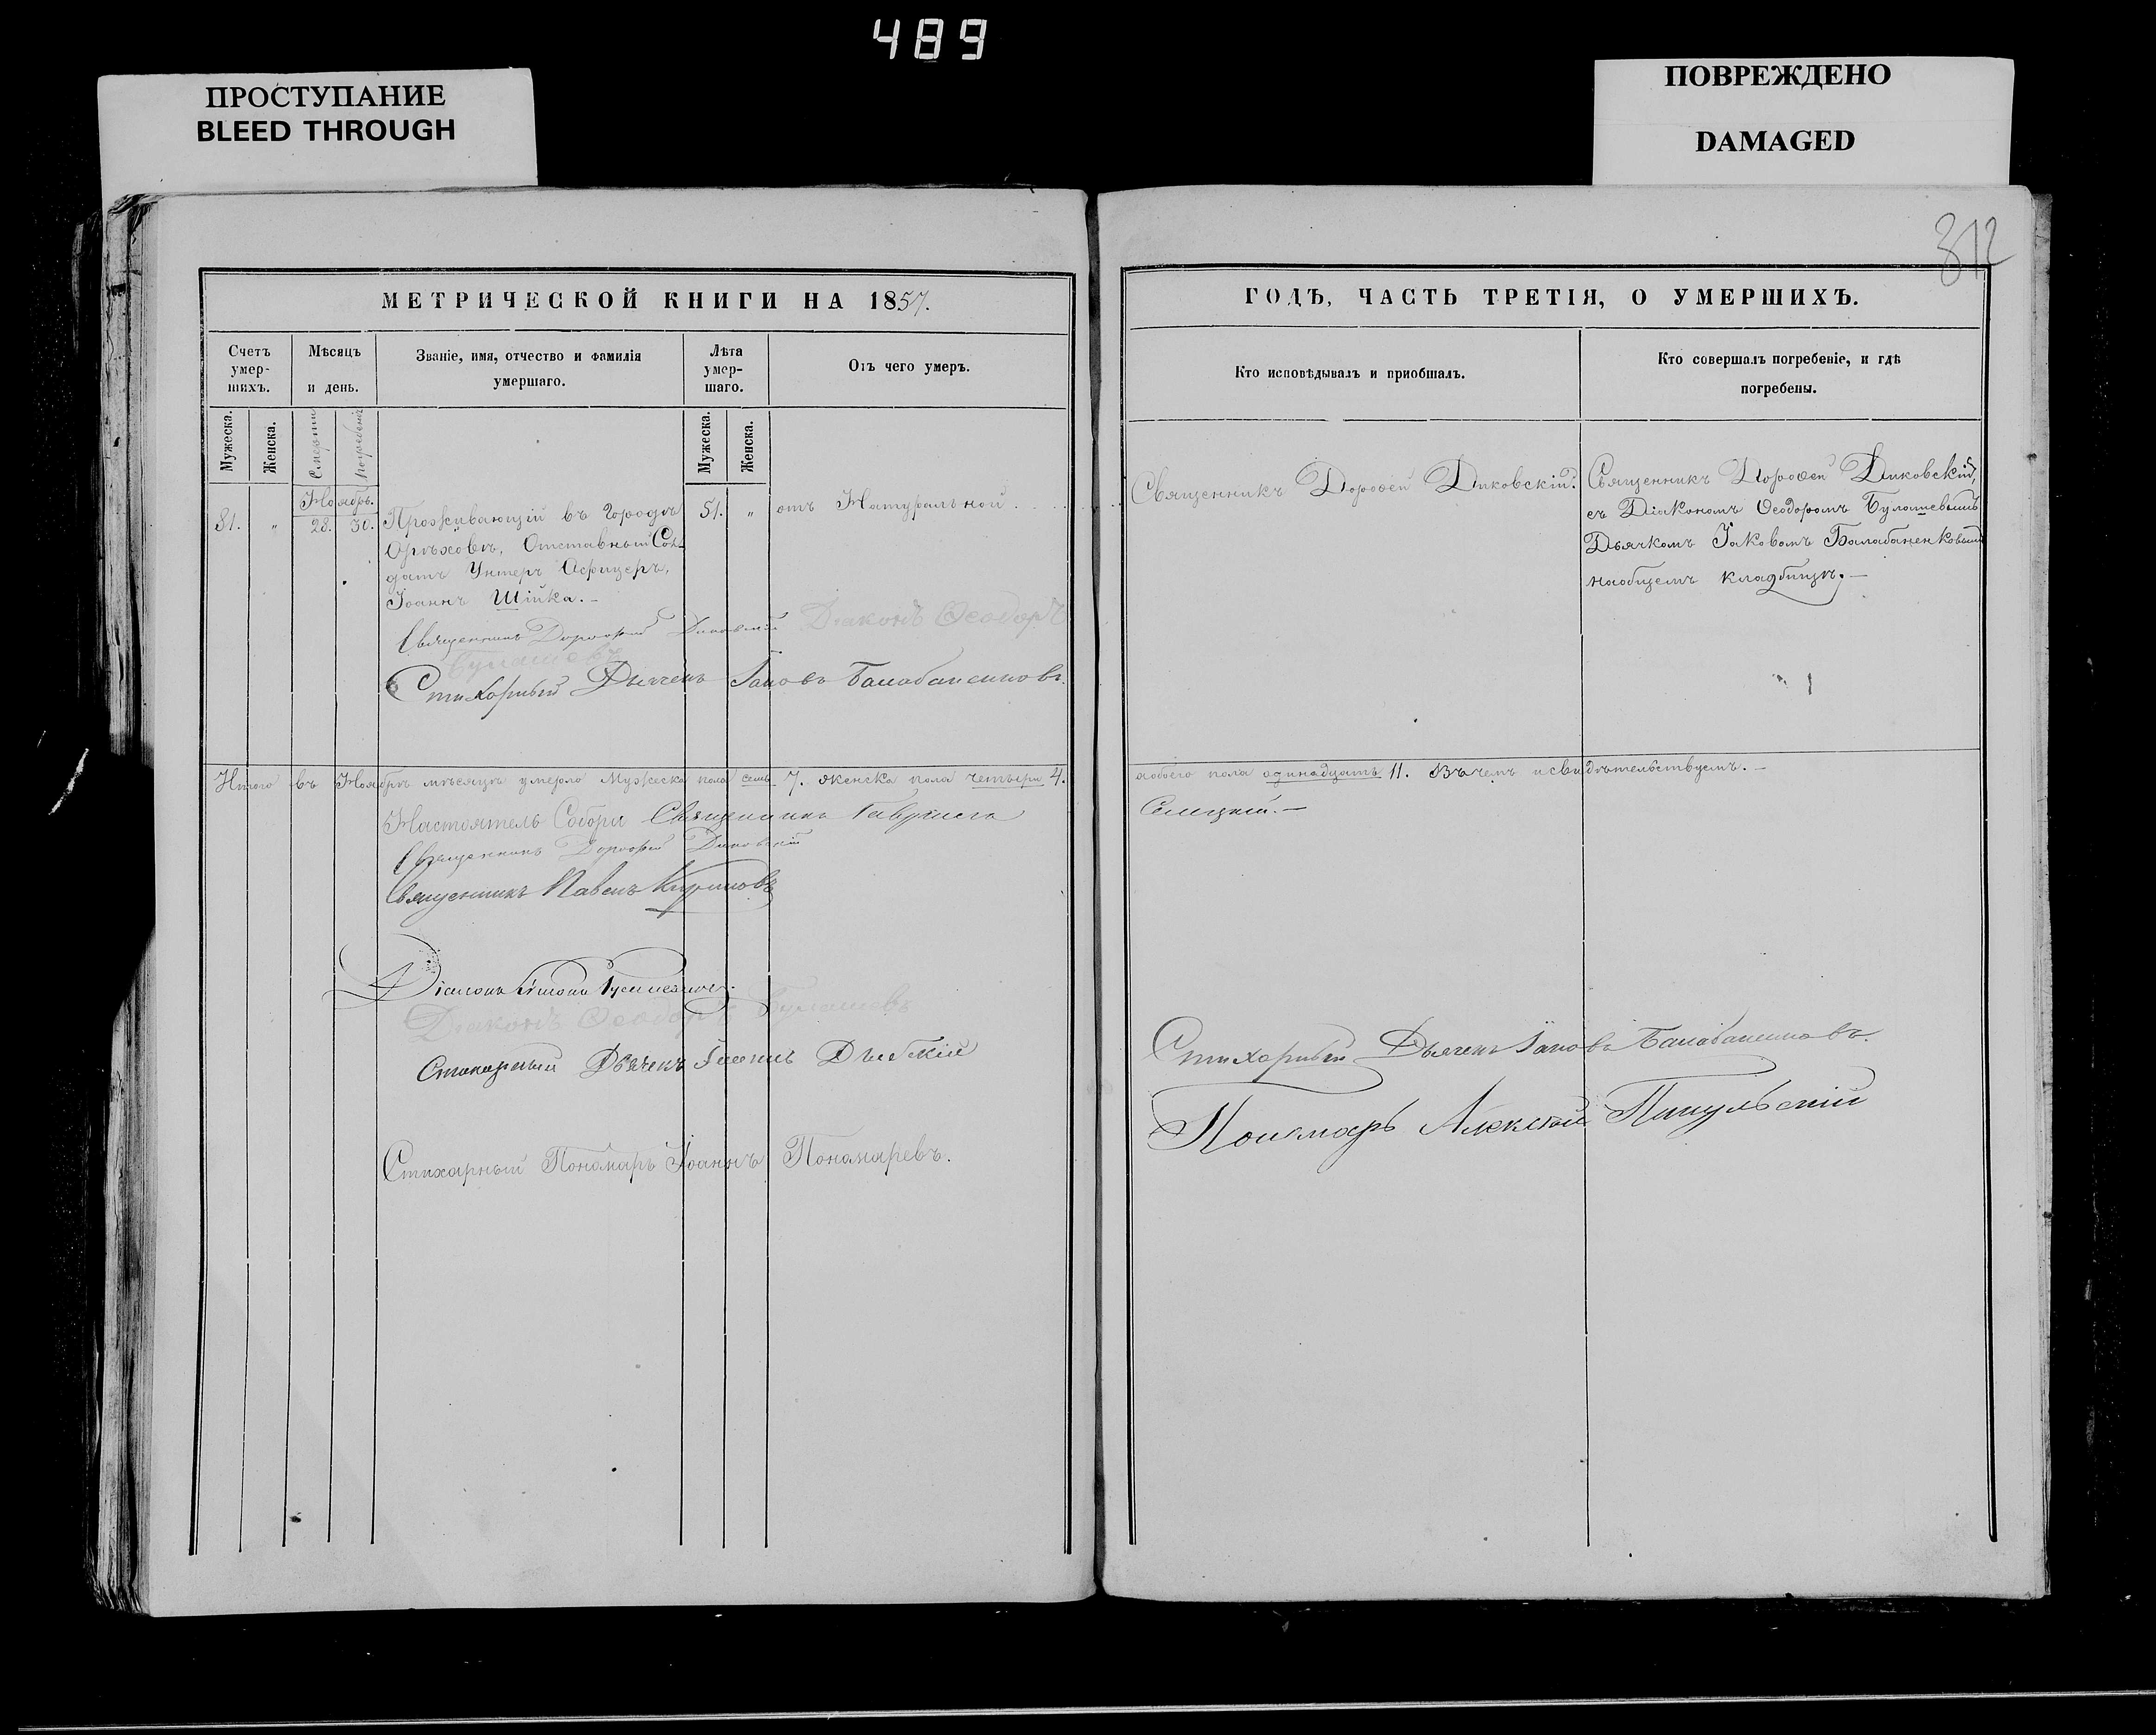 489
ПРОСТУПАНИЕ
BLEED THROUGH
ПОВРЕЖДЕНО
DAMAGED
312
МЕТРИЧЕСКОЙ КНИГИ НА 1857.
Счетъ умер-шихъ.
Мѣсяцъ и день.
Званіе, имя, отчество и фамилія умершаго.
Лѣта умер-шаго.
Отъ чего умеръ.
Мужеска.
Женска.
Смерти
Погребенія
Мужеска.
Женска.
Ноябрь.
81. " 28. 30.
Проживающій въ Городѣ
Орѣховѣ, Отставный Сол-
датъ Унтеръ Офицеръ,
Іоаннъ Шійка.—
51. "
отъ Натуральной
Священникъ Дорофей Диковскій Діаконъ Ѳеодоръ
Булашевъ
Стихарный Дьячекъ Іаковъ Балабаненковъ.
Итого въ Ноябрѣ мѣсяцѣ умерло Мужеска пола семь 7. женска пола четыри 4.
Настоятель Собора Священникъ Гавріилъ
Священникъ Дорофей Диковскій
Священникъ Павелъ Кириловъ
Діаконъ
Діаконъ Ѳеодоръ Булашевъ
Стихарный Дьячекъ
Стихарный Пономарь Іоаннъ Пономаревъ.
ГОДЪ, ЧАСТЬ ТРЕТІЯ, О УМЕРШИХЪ.
Кто исповѣдывалъ и пріобщалъ.
Кто совершалъ погребеніе, и гдѣ погребены.
Священникъ Дороѳей Диковскій.
Священникъ Дороѳей Диковскій,
съ Діакономъ Ѳеодоромъ Булашевымъ
Дьячкомъ Іаковомъ Балабаненковымъ
наобщемъ кладбищѣ.—
аобоего пола одинадцать 11. Въ чемъ исвидѣтельствуемъ.—
Селицкій.—
Стихарный Дьячекъ Іаковъ Балабаненковъ.
Пономарь Алексѣй Пикульскій